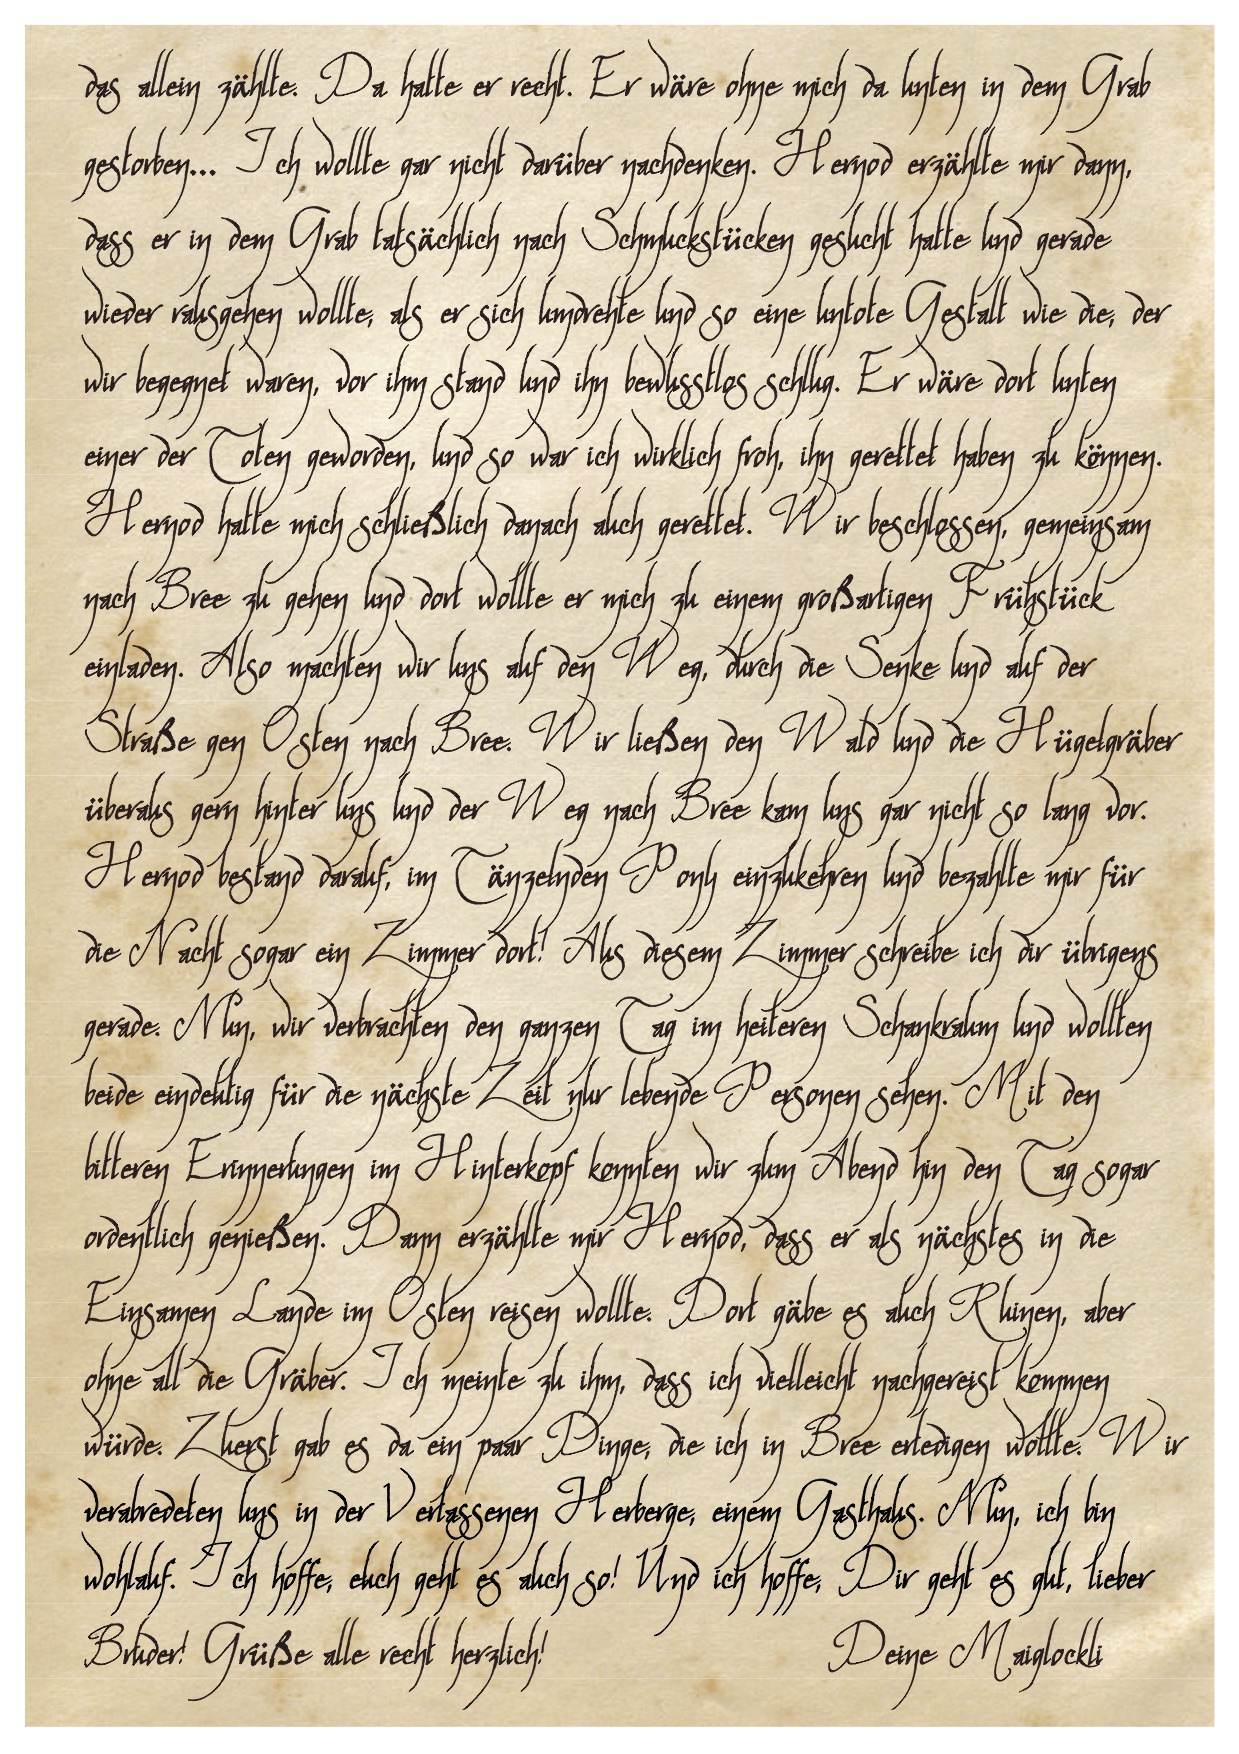 das allein zählte. Da hatte er recht. Er wäre ohne mich da unten in dem Grab
gestorben... Ich wollte gar nicht darüber nachdenken. Hernod erzählte mir dann,
dass er in dem Grab tatsächlich nach Schmuckstücken gesucht hatte und gerade
wieder rausgehen wollte, als er sich umdrehte und so eine untote Gestalt wie die, der
wir begegnet waren, vor ihm stand und ihn bewusstlos schlug. Er wäre dort unten
einer der Toten geworden, und so war ich wirklich froh, ihn gerettet haben zu können.
Hernod hatte mich schließlich danach auch gerettet. Wir beschlossen, gemeinsam
nach Bree zu gehen und dort wollte er mich zu einem großartigen Frühstück
einladen. Also machten wir uns auf den Weg, durch die Senke und auf der
Straße gen Osten nach Bree. Wir ließen den Wald und die Hügelgräber
überaus gern hinter uns und der Weg nach Bree kam uns gar nicht so lang vor.
Hernod bestand darauf, im Tänzelnden Pony einzukehren und bezahlte mir für
die Nacht sogar ein Zimmer dort! Aus diesem Zimmer schreibe ich dir übrigens
gerade. Nun, wir verbrachten den ganzen Tag im heiteren Schankraum und wollten
beide eindeutig für die nächste Zeit nur lebende Personen sehen. Mit den
bitteren Erinnerungen im Hinterkopf konnten wir zum Abend hin den Tag sogar
ordentlich genießen. Dann erzählte mir Hernod, dass er als nächstes in die
Einsamen Lande im Osten reisen wollte. Dort gäbe es auch Ruinen, aber
ohne all die Gräber. Ich meinte zu ihm, dass ich vielleicht nachgereist kommen
würde. Zuerst gab es da ein paar Dinge, die ich in Bree erledigen wollte. Wir
verabredeten uns in der Verlassenen Herberge, einem Gasthaus. Nun, ich bin
wohlauf. Ich hoffe, euch geht es auch so! Und ich hoffe, Dir geht es gut, lieber
Bruder! Grüße alle recht herzlich! Deine Maiglockli